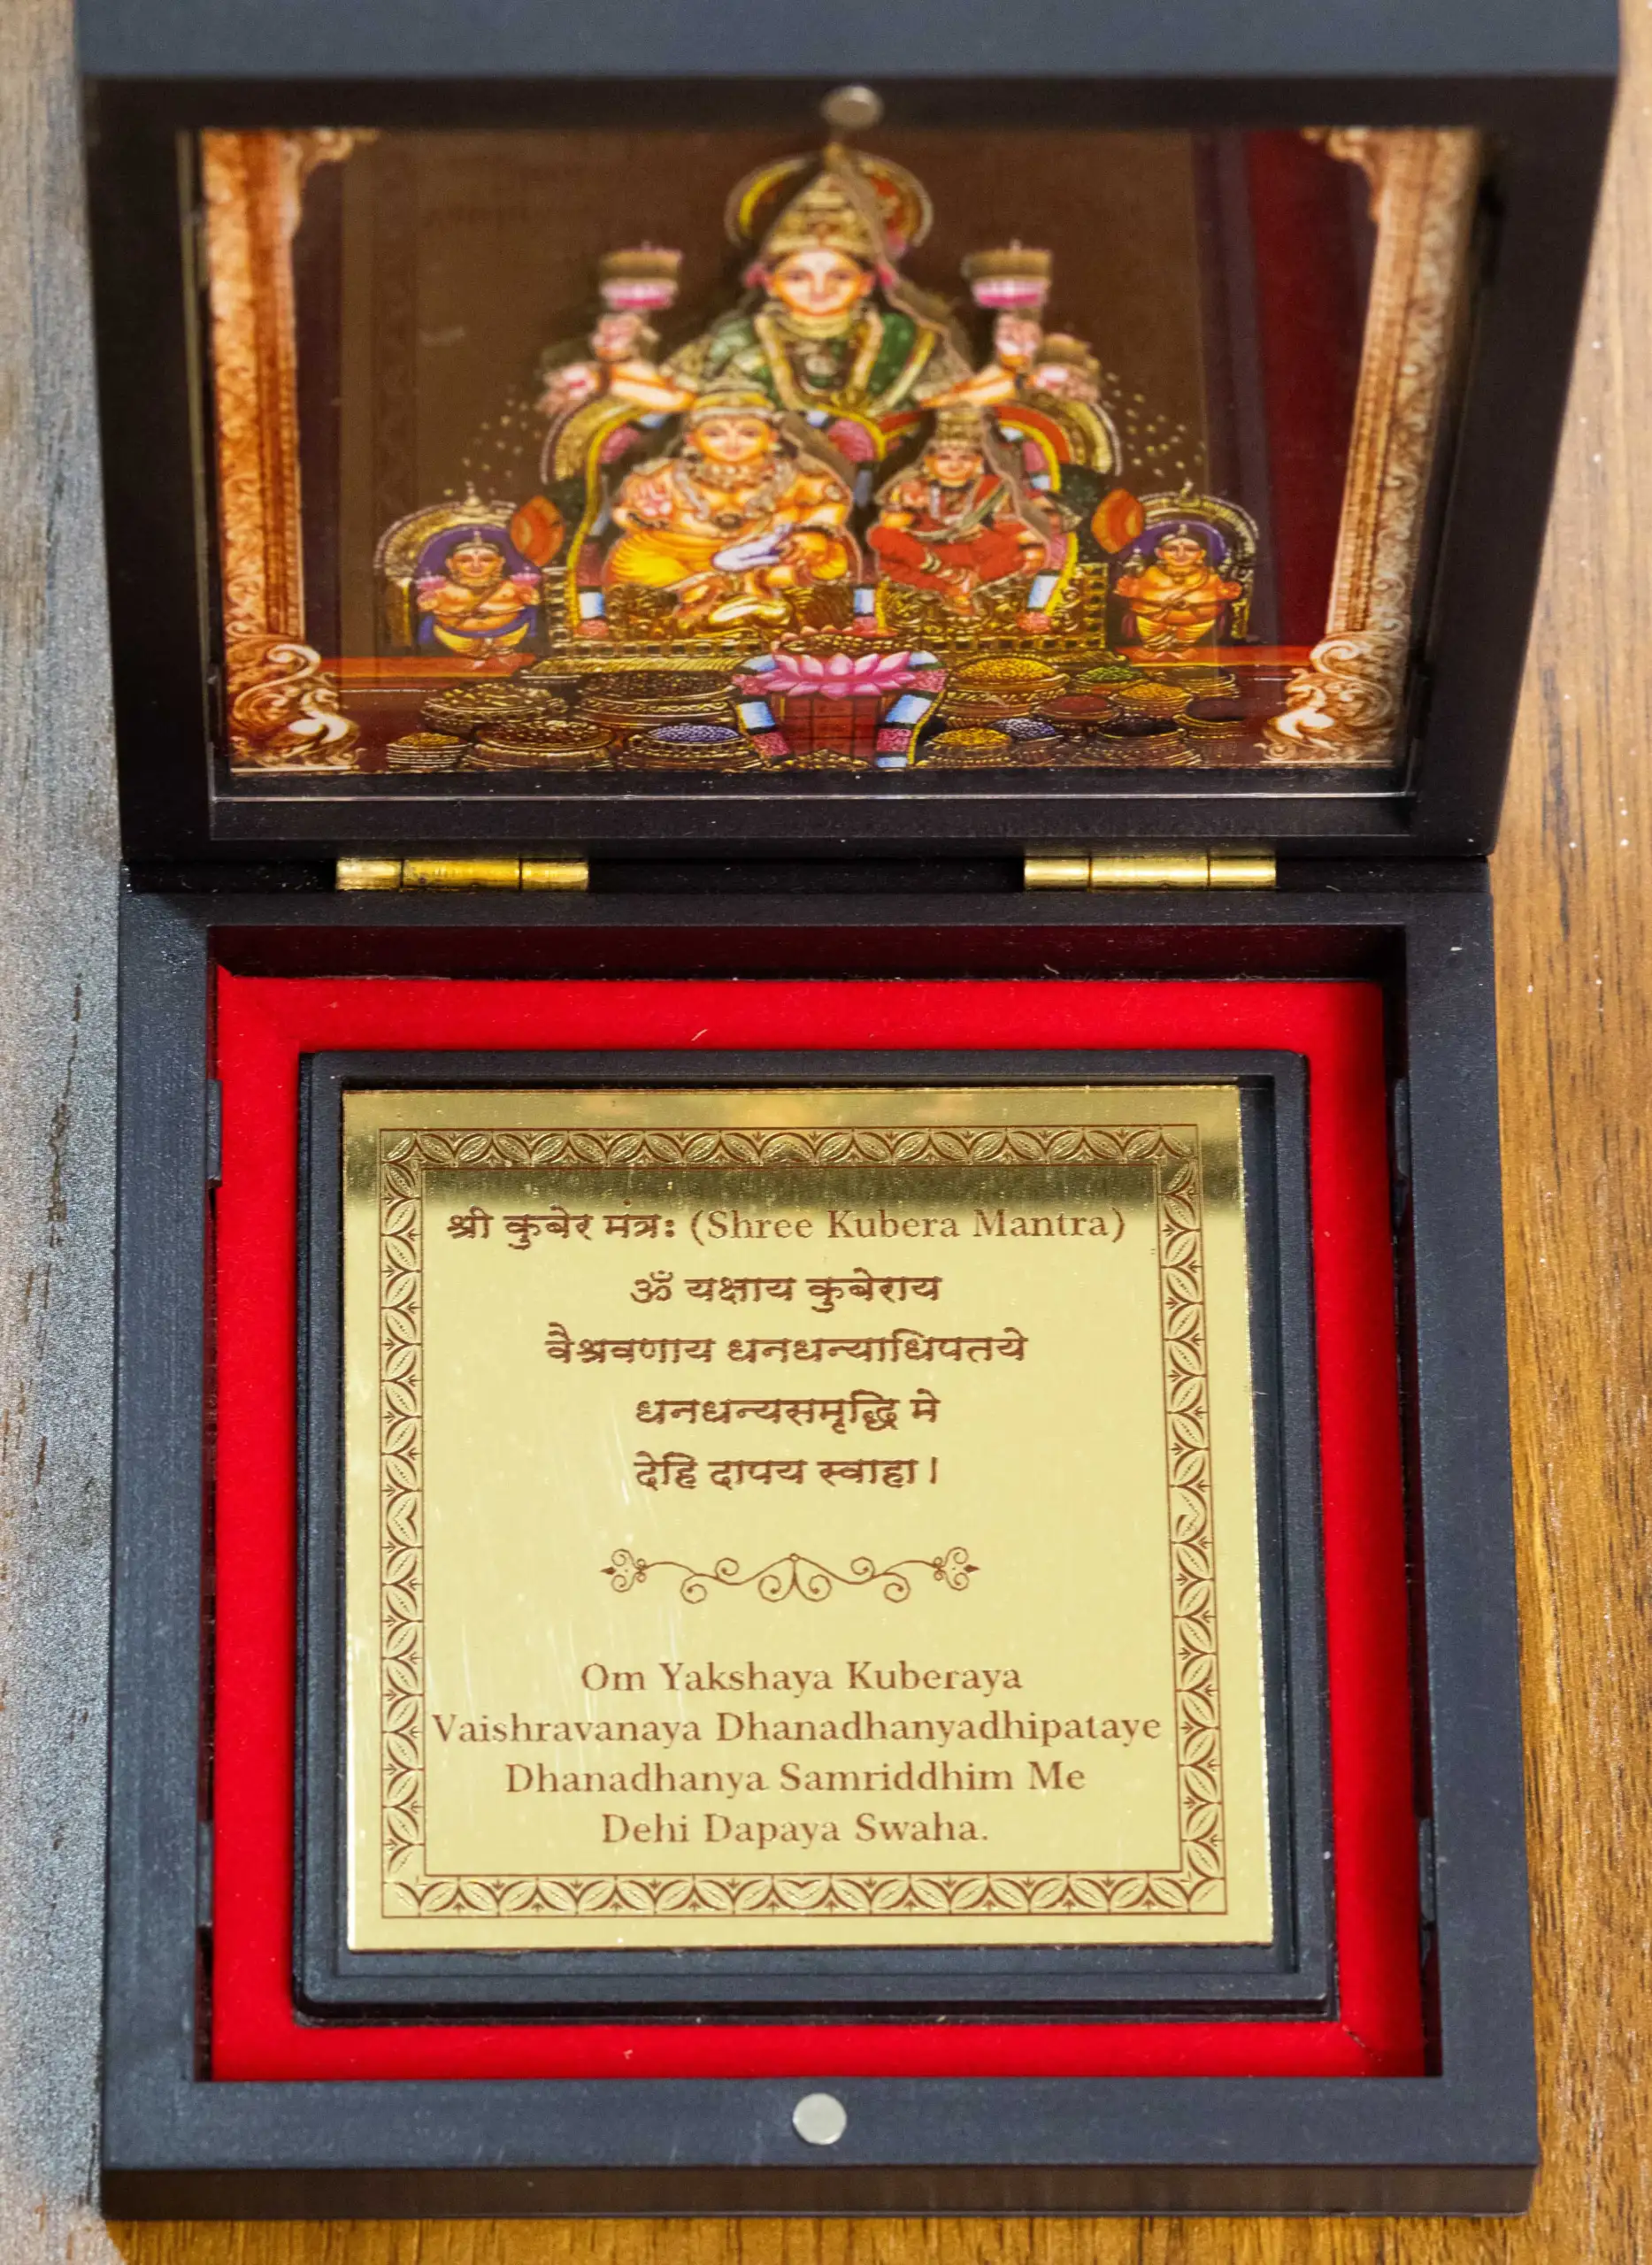 श्री कुबेर मंत्रः (Shree Kubera Mantra)
ॐ यक्षाय कुबेराय
वैश्रवणाय धनधन्याधिपतये
धनधन्यसमृद्धि मे
देहि दापय स्वाहा।
Om Yakshaya Kuberaya
Vaishravanaya Dhanadhanyadhipataye
Dhanadhanya Samriddhim Me
Dehi Dapaya Swaha.